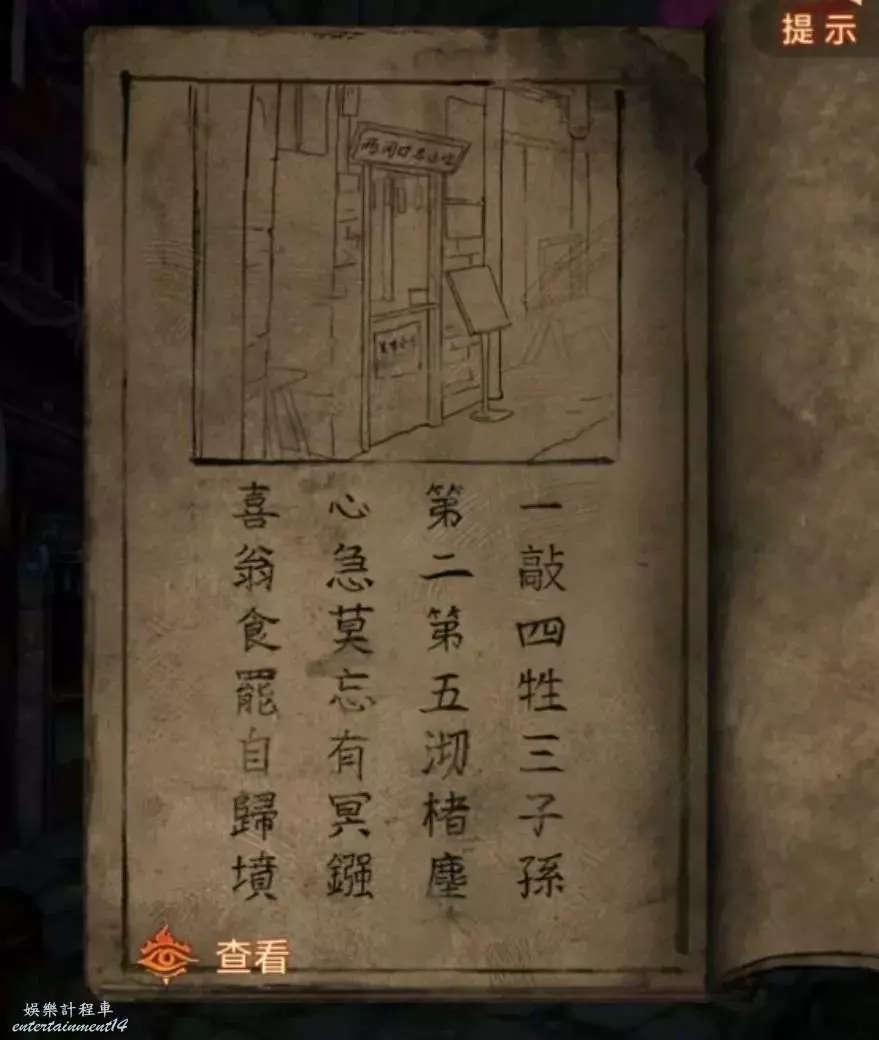 提示
一敲四牲三子孫
第二第五沏楮塵
心急莫忘有冥鏹
喜翁食罷自歸墳
查看
娛樂計程車
entertainment14